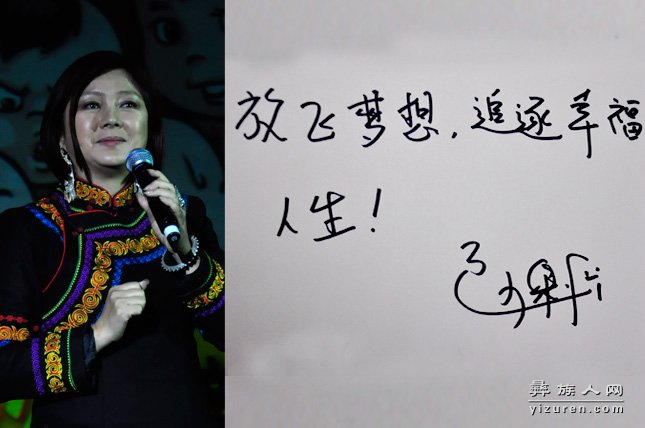 放飞梦想,追逐幸福
人生!
彝族人网
yizuren.com